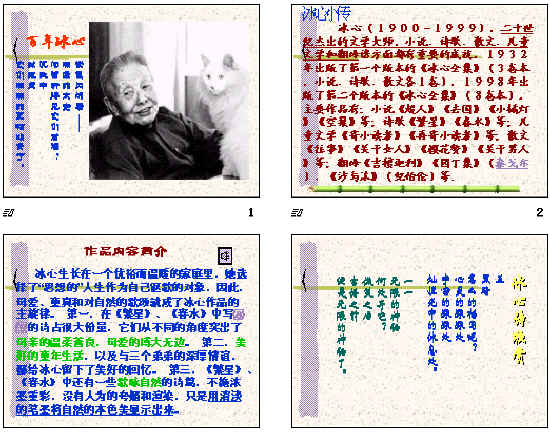 百年冰心
繁星闪烁着——
深蓝的太空
何曾听得见它们对语？
沉默中
微光里
它们深深的互相颂赞了。
1
冰心小传
冰心（1900-1999），二十世
纪杰出的文学大师，小说、诗歌、散文、儿童
文学和翻译诸方面都有重要的成就。1932
年出版了第一个版本的《冰心全集》（3卷本
，小说、诗歌、散文各1卷），1998年出
版了第二个版本的《冰心全集》（8卷本）。
主要作品有：小说《超人》《去国》《小橘灯
》《空巢》等；诗歌《繁星》《春水》等；儿
童文学《寄小读者》《再寄小读者》等；散文
《往事》《关于女人》《樱花赞》《关于男人
》等；翻译《吉檀迦利》《园丁集》（泰戈尔
）、《沙与沫》（纪伯伦）等。
2
作品内容简介
冰心生长在一个优裕而温暖的家庭里，她选
择了“思想的”人生作为自己讴歌的对象，因此，
母爱、童真和对自然的歌颂就成了冰心作品的
主旋律。 第一，在《繁星》、《春水》中写
的诗占很大份量，它们从不同的角度突出了
母亲的温柔善良，母爱的博大无边。 第二，美
好的童年生活，以及与三个弟弟的深厚情谊，
都给冰心留下了美好的回忆。 第三，《繁星》、
《春水》中还有一些歌咏自然的诗篇，不施浓
墨重彩，没有人为的夸饰和渲染，只是用清淡
的笔墨将自然的本色美显示出来。
冰心诗欣赏
五
黑暗
怎样的描写呢？
心灵的深深处
宇宙的深深处
灿烂光中的休息处。
一一
无限的神秘
何处寻他？
微笑之后
言语之前
便是无限的神秘了。